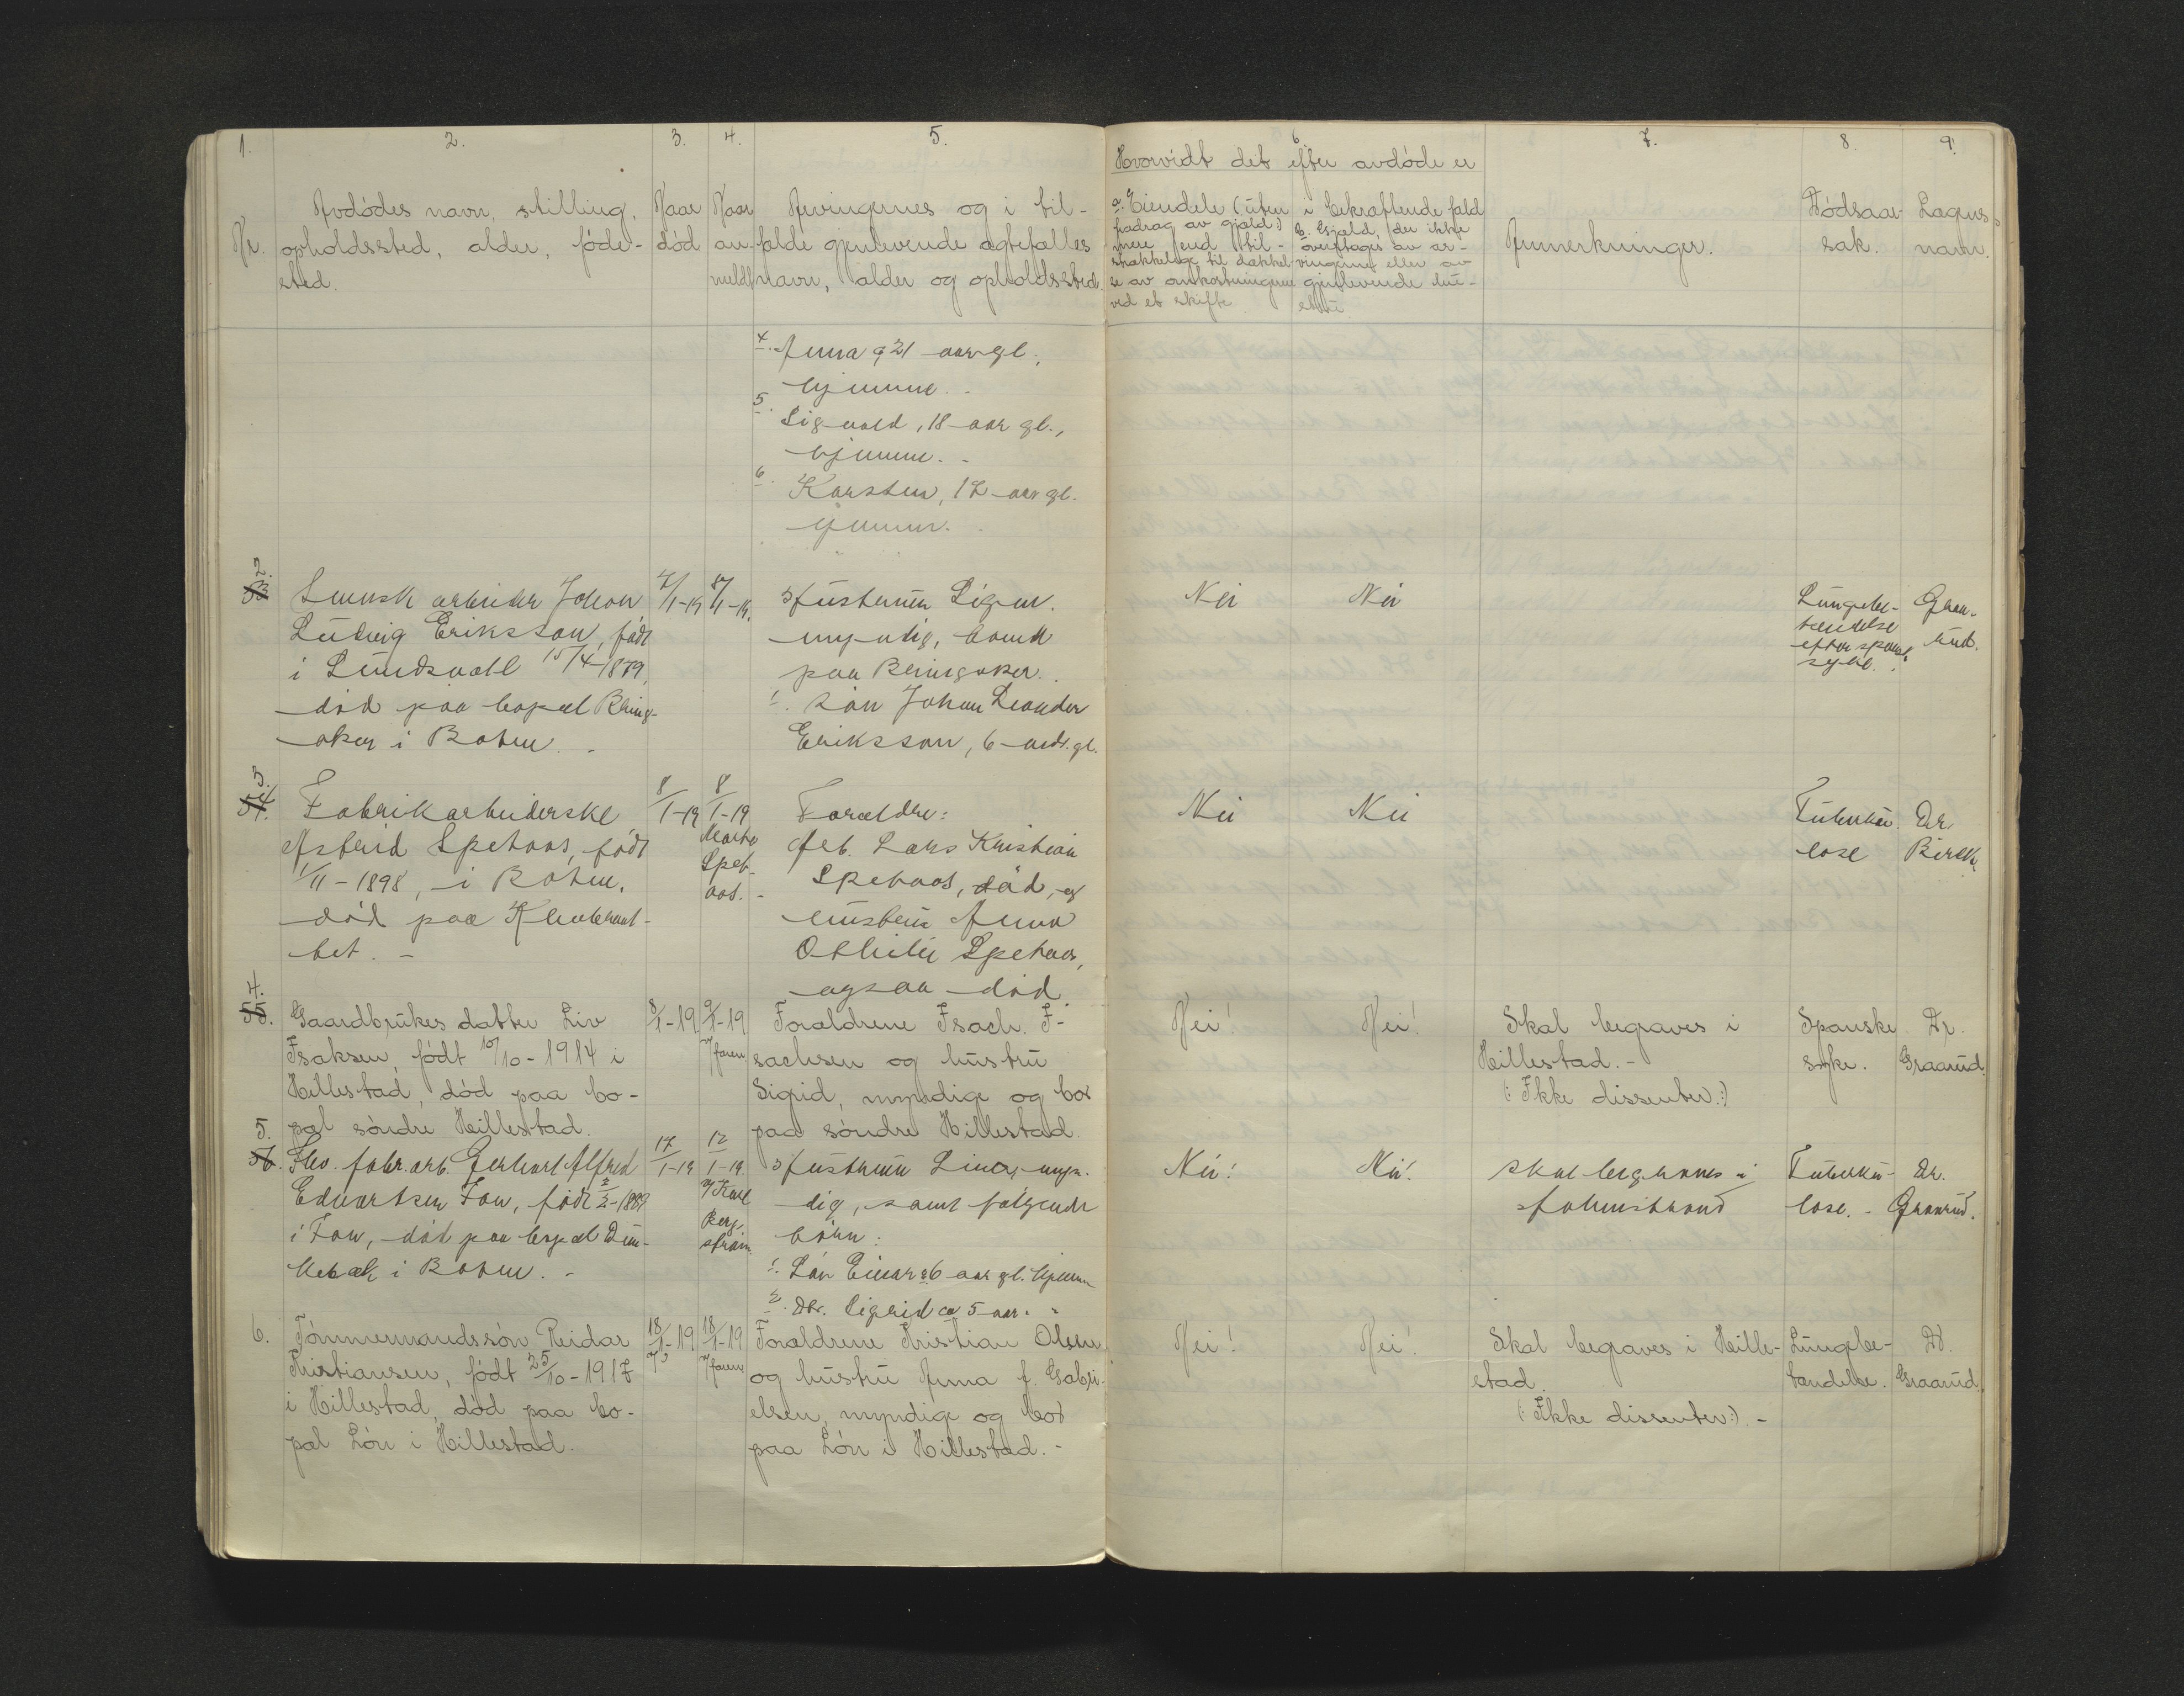 1.
2.
3.
4.
5.
6
7.
8.
9.
Nr.
Avdödes navn, stilling,
opholdssted, alder, föde-
sted.
Naar
död
Naar
an-
meldt
Arvingernes og i til-
fælde gjenlevende ægtefælles
navn, alder og opholdssted.
Hvorvidt det efter avdöde er
a. Eiendele (uten
fradrag av gjæld:)
mere end til-
strækkelige til dækkel-
se av omkostningerne
ved et skifte
i bekræftende fald
b. Gjæld, der ikke
overtages av ar-
vingerne eller av
gjenlevende hu-
stru
Anmerkninger.
Dödsaar-
sak.
Lægens
navn.
4. Anna, 21 aar gl.,
hjemme. -
5. Sigvald, 18 aar gl.,
hjemme. -
6. Karsten, 12 aar gl.
hjemme. -
2.
53.
Svensk arbeider Johan
Ludvig Eriksson, född
i Sundsvall 15/4-1879,
död paa bopæl Bring-
aker i Botne. -
7/1-19
8/1-19.
Hustruen Signe.
myndig, boende
paa Bringaker.
1. Sön Johan Leander
Eriksson, 6 aar gl.
Nei
Nei
Lungebe-
tændelse
efter spansk
syke.
Graa-
rud.
3.
54.
Fabrikarbeiderske
Astrid Spetaas, född
1/11-1898, i Botne.
död paa Kleiva
8/1-19
8/1-19
Marta
Spet-
aas. -
Forældre:
Arb. Lars Kristian
Spetaas, död, og
hustru Anna
Othilie Spetaas,
ogsaa död.
Nei
Nei
Tuberku-
lose
Dr.
Birch
4.
55.
Gaardbrukes datter Liv
Isaksen, födt 10/10-1914 i
Hillestad, död paa bo-
pæl söndre Hillestad.
8/1-19
9/1-19
v/ faren
Forældrene Isach. I-
sachsen og hustru
Sigrid, myndige og bor
paa söndre Hillestad.
Nei!
Nei!
Skal begraves i
Hillestad. -
(: Ikke dissenter.:)
Spanske
syke.
Dr.
Graarud.
5.
56.
Fhv. fabr. arb. Gerhart Alfred
Edvartsen Fon, födt 2/2-1889
i Fon, död paa bopæl
i Botne. -
17/1-19
12/1-19
v/ Karl
Berg-
ström.
Hustruen Lina, myn-
dig, samt følgende
börn:
1. Sön Einar 6 aar gl. hjemme
2. Dtr. Sigrid ca 5 aar. " "
Nei!
Nei!
Skal begraves i
Holmestrand
Tuberku-
lose. -
Dr.
Graarud.
6.
Tömmermandssön Reidar
Kristiansen, födt 25/10-1917
i Hillestad, död paa bo-
pæl Lön i Hillestad.
18/1-19
18/1-19
v/ faren
Forældrene Kristian Olsen
og hustru Anna f. Gabri-
elsen, myndige og bor
paa Lön i Hillestad. -
Nei!
Nei!
Skal begraves i Hille-
stad.
(: Ikke dissenter:). -
Lungebe-
tændelse.
Dr.
Graarud.